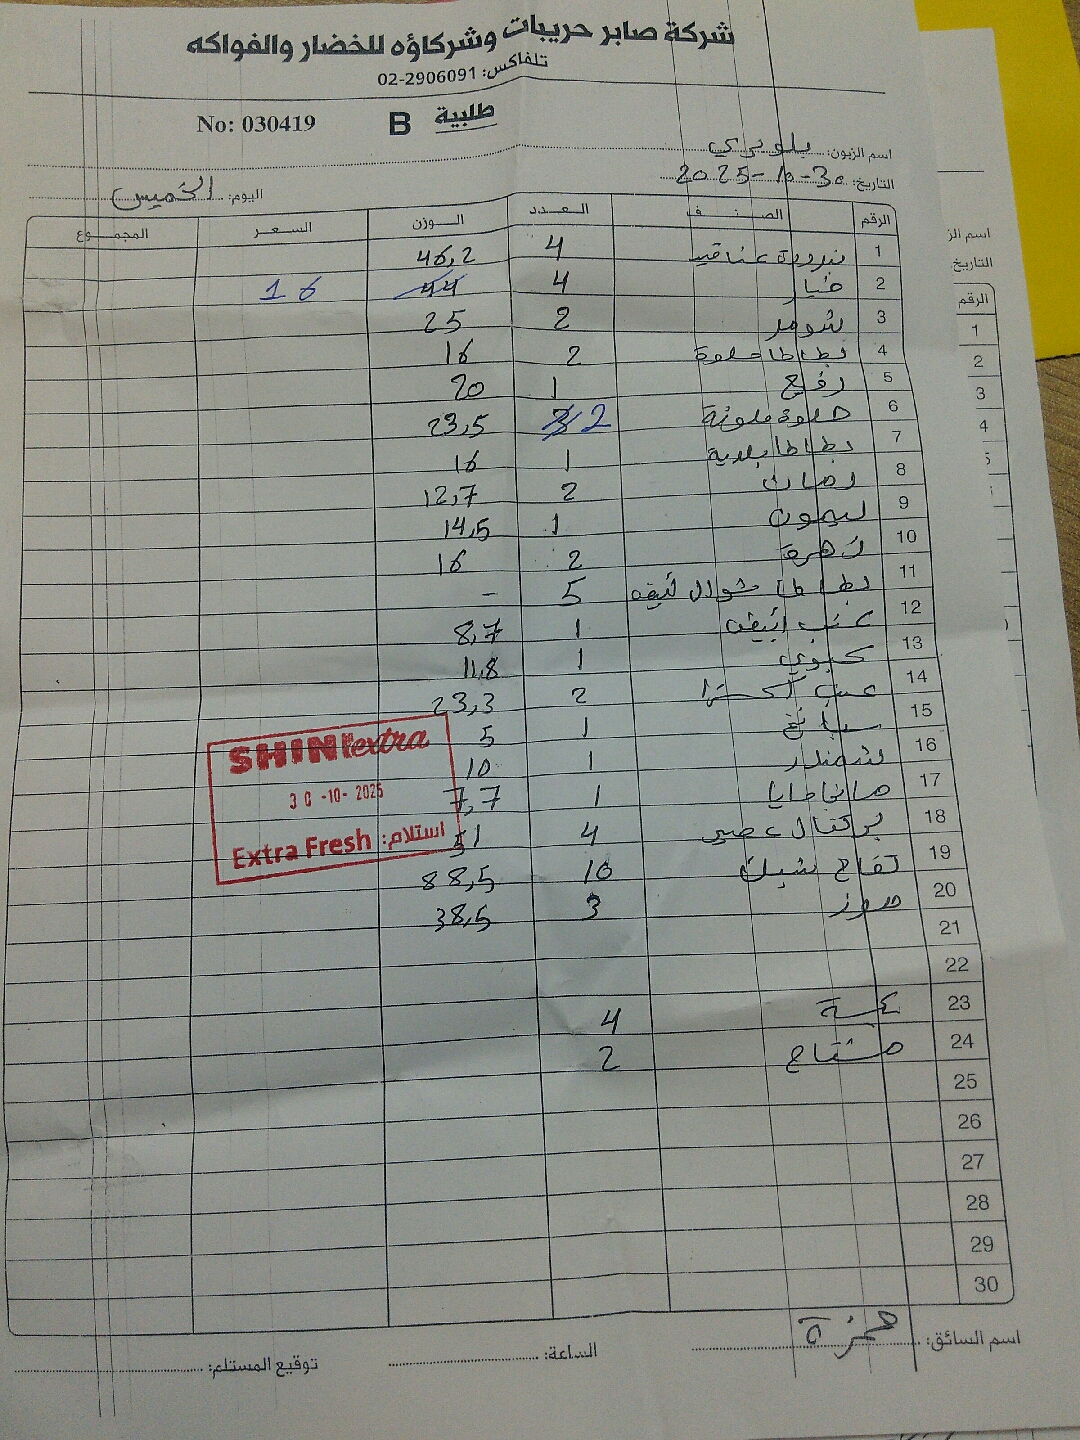 شركة صابر حريبات وشركاؤه للخضار والفواكه
تلفاكس: 02-2906091
No: 030419 B طلبية
اسم الزبون: بلوبري
التاريخ: 30-10-2025
اليوم: الخميس
الرقم الصنف العدد الوزن السعر المجموع
1 بندورة عناقيد 4 46,2
2 خيار 4 44 16
3 شومر 2 25
4 بطاطا حلوة 2 16
5 رفيع 1 20
6 حلوة ملونة 3 2 23,5
7 بطاطا بلدية 1 16
8 2 12,7
9 ليمون 1 14,5
10 زهرة 2 16
11 بطاطا شوال 5 -
12 عنب 1 8,7
13 1 11,8
14 عنب 2 23,3
15 سبانخ 1 5
16 شمندر 1 10
17 1 7,7
18 برتقال عصير 4 51
19 تفاح 10 88,5
20 موز 3 38,5
21
22
23 4
24 مشتاح 2
25
26
27
28
29
30
SHINI extra
30-10-2025
Extra Fresh استلام:
اسم السائق: حمزة
الساعة:
توقيع المستلم:
اسم الز
التاريخ:
الرقم
1
2
3
4
5